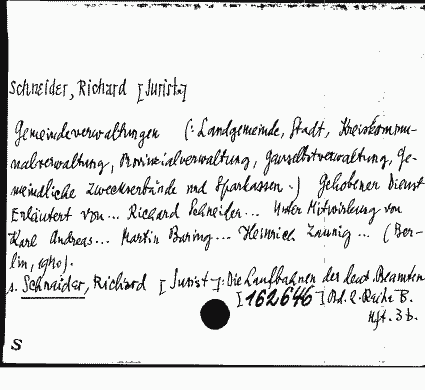 Schneider, Richard [Jurist]
Gemeindeverwaltungen (: Landgemeinde, Stadt, Kreiskommu-
nalverwaltung, Provinzialverwaltung, Gauselbstverwaltung, Ge-
meindliche Zweckverbände und Sparkassen :) Gehobener Dienst
Erläutert von... Richard Schneider... Unter Mitwirkung von
Karl Andreas... Martin Buring... Heinrich Zaunig... (Ber-
lin, 1940).
s. Schneider, Richard [Jurist]: Die Laufbahnen der deut. Beamten
[162646] Bd. 2. Reihe B.
Hft. 3b.
S